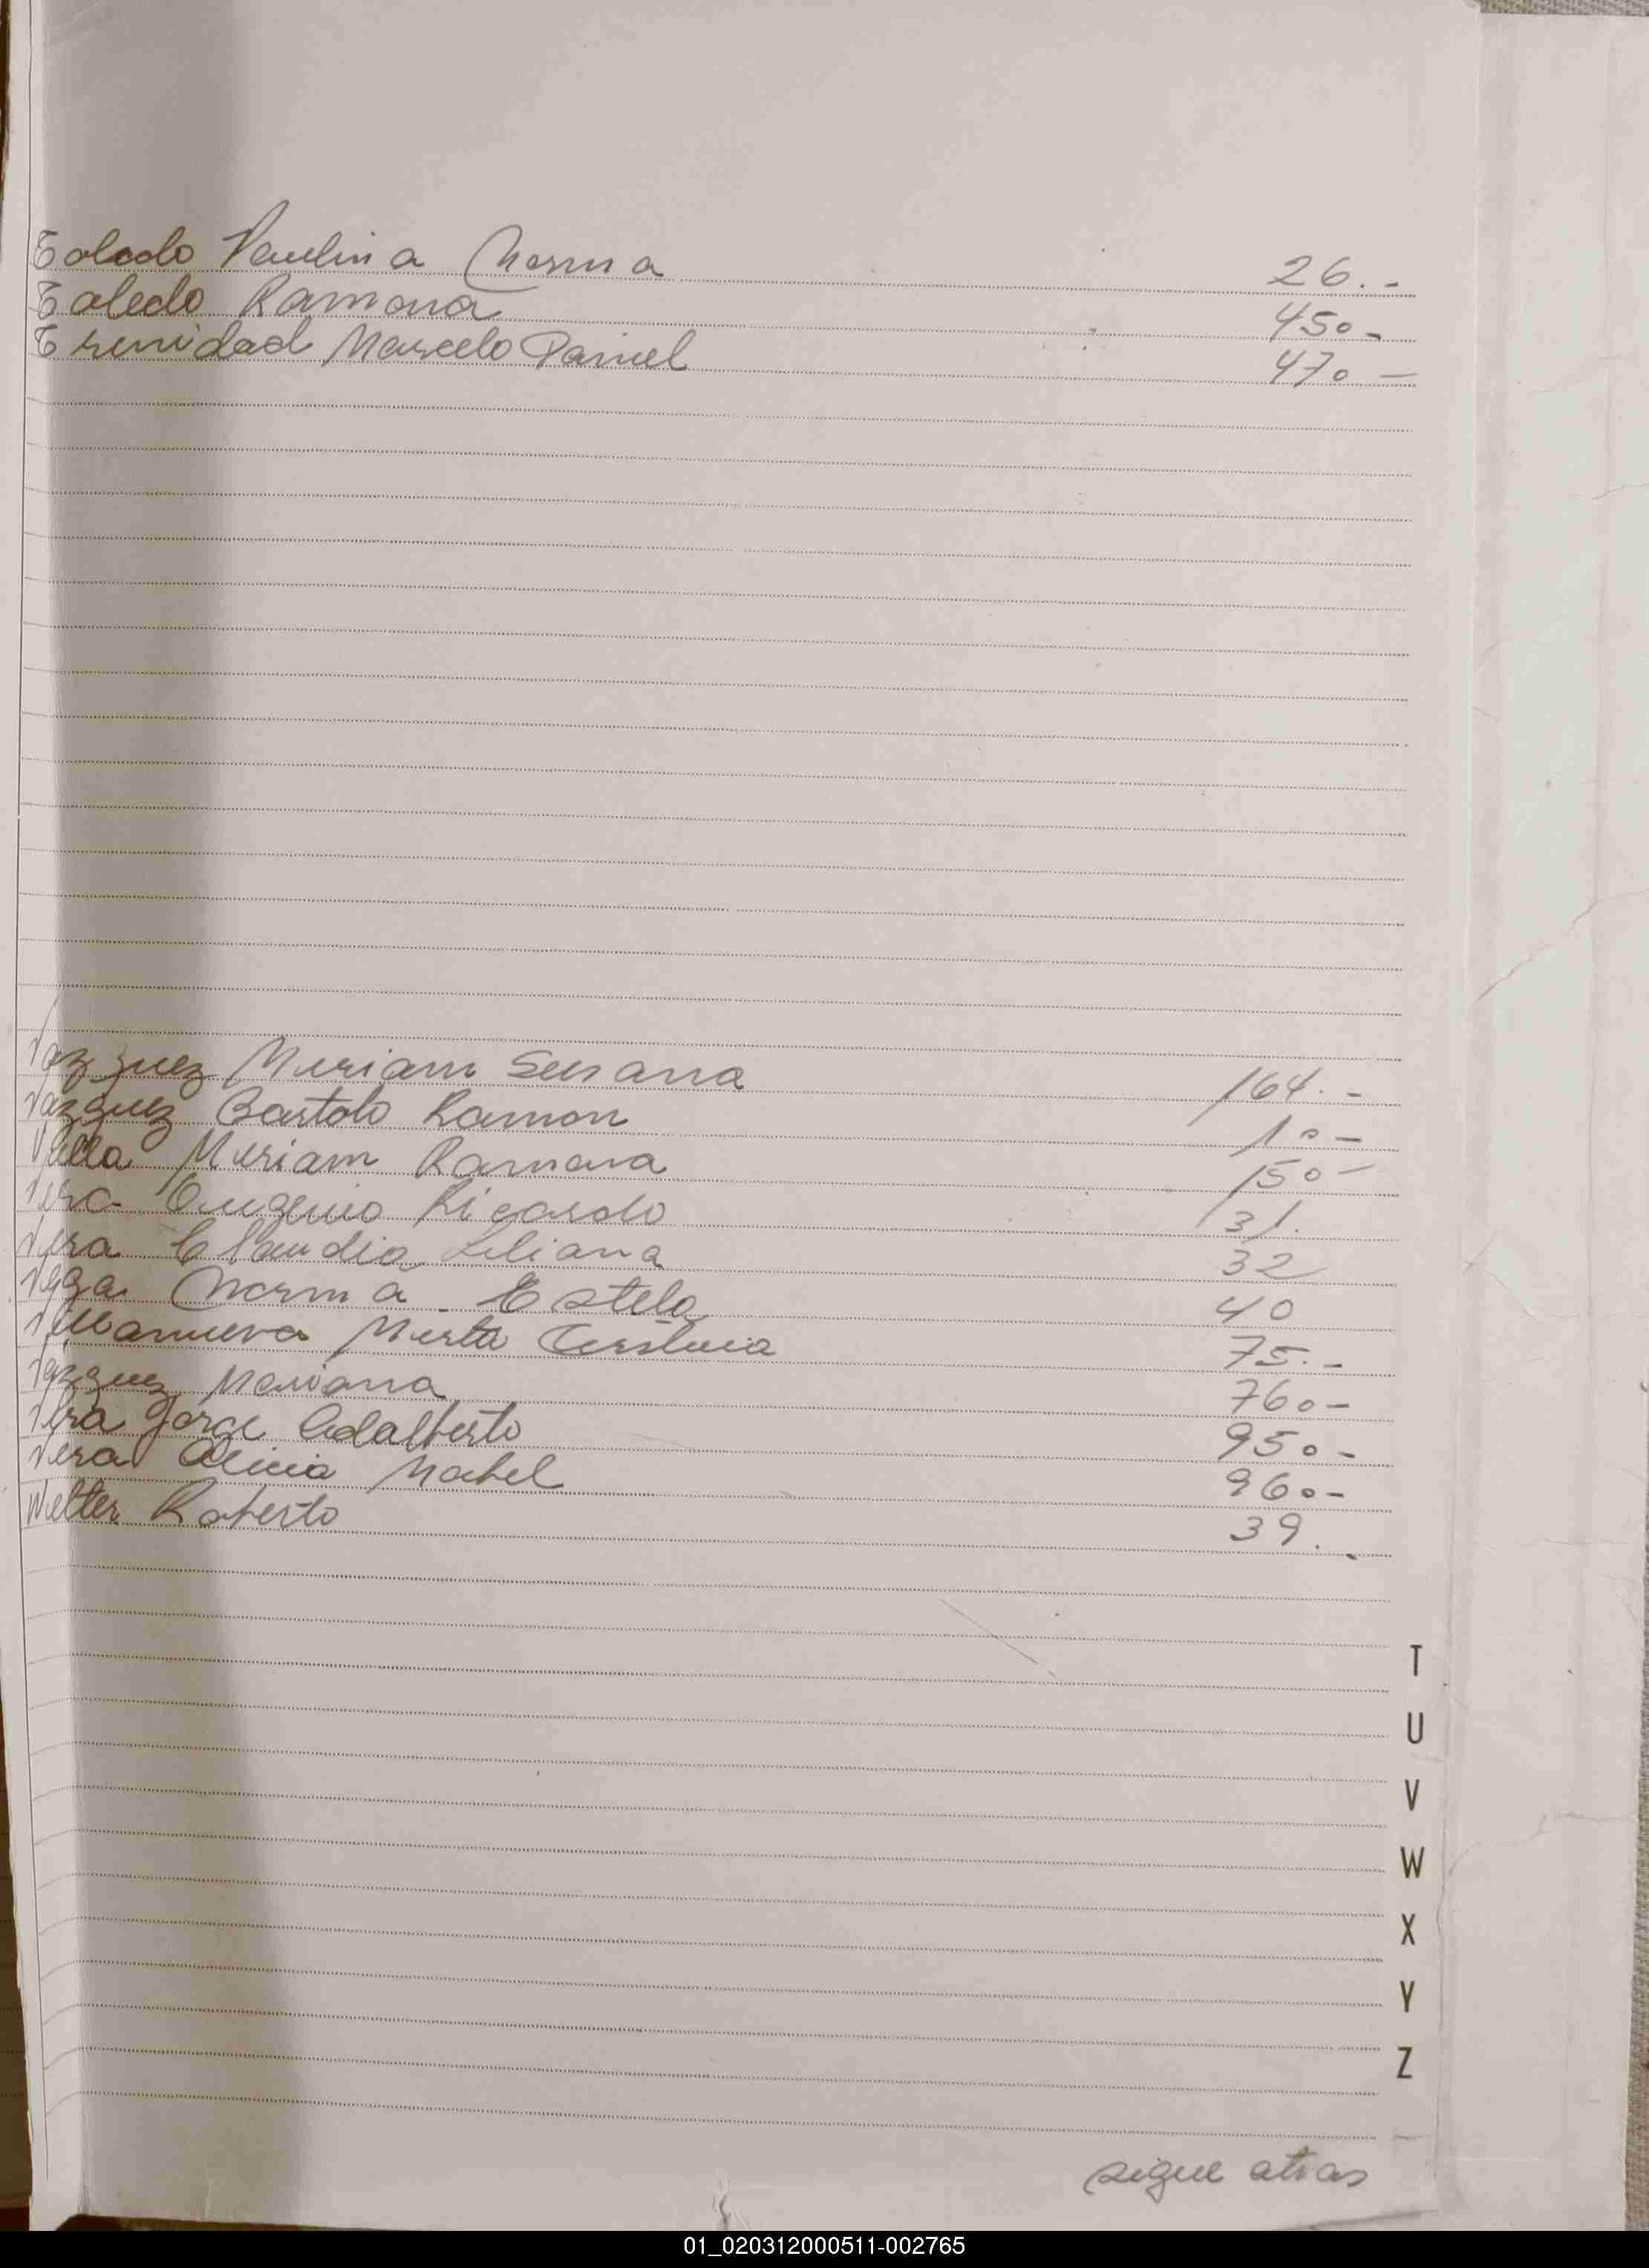 Toledo Paulina Norma 26.-
Toledo Ramona 45o-
Trinidad Marcelo Daniel 47o-
Vazquez Miriam Susana 164.-
Vazquez Bartolo Ramon 1o-
Valla Miriam Ramona 15o-
Vera Eugenio Ricardo 31.
Vera Claudia Liliana 32
Vega Norma Estela 40
Villanueva Mirta 75.-
Vazquez Mariana 76o-
Vera Jorge Adalberto 95o-
Vera Alicia Mabel 96o-
Welter Roberto 39.-
T
U
V
W
X
Y
Z
sigue atras
01_020312000511-002765